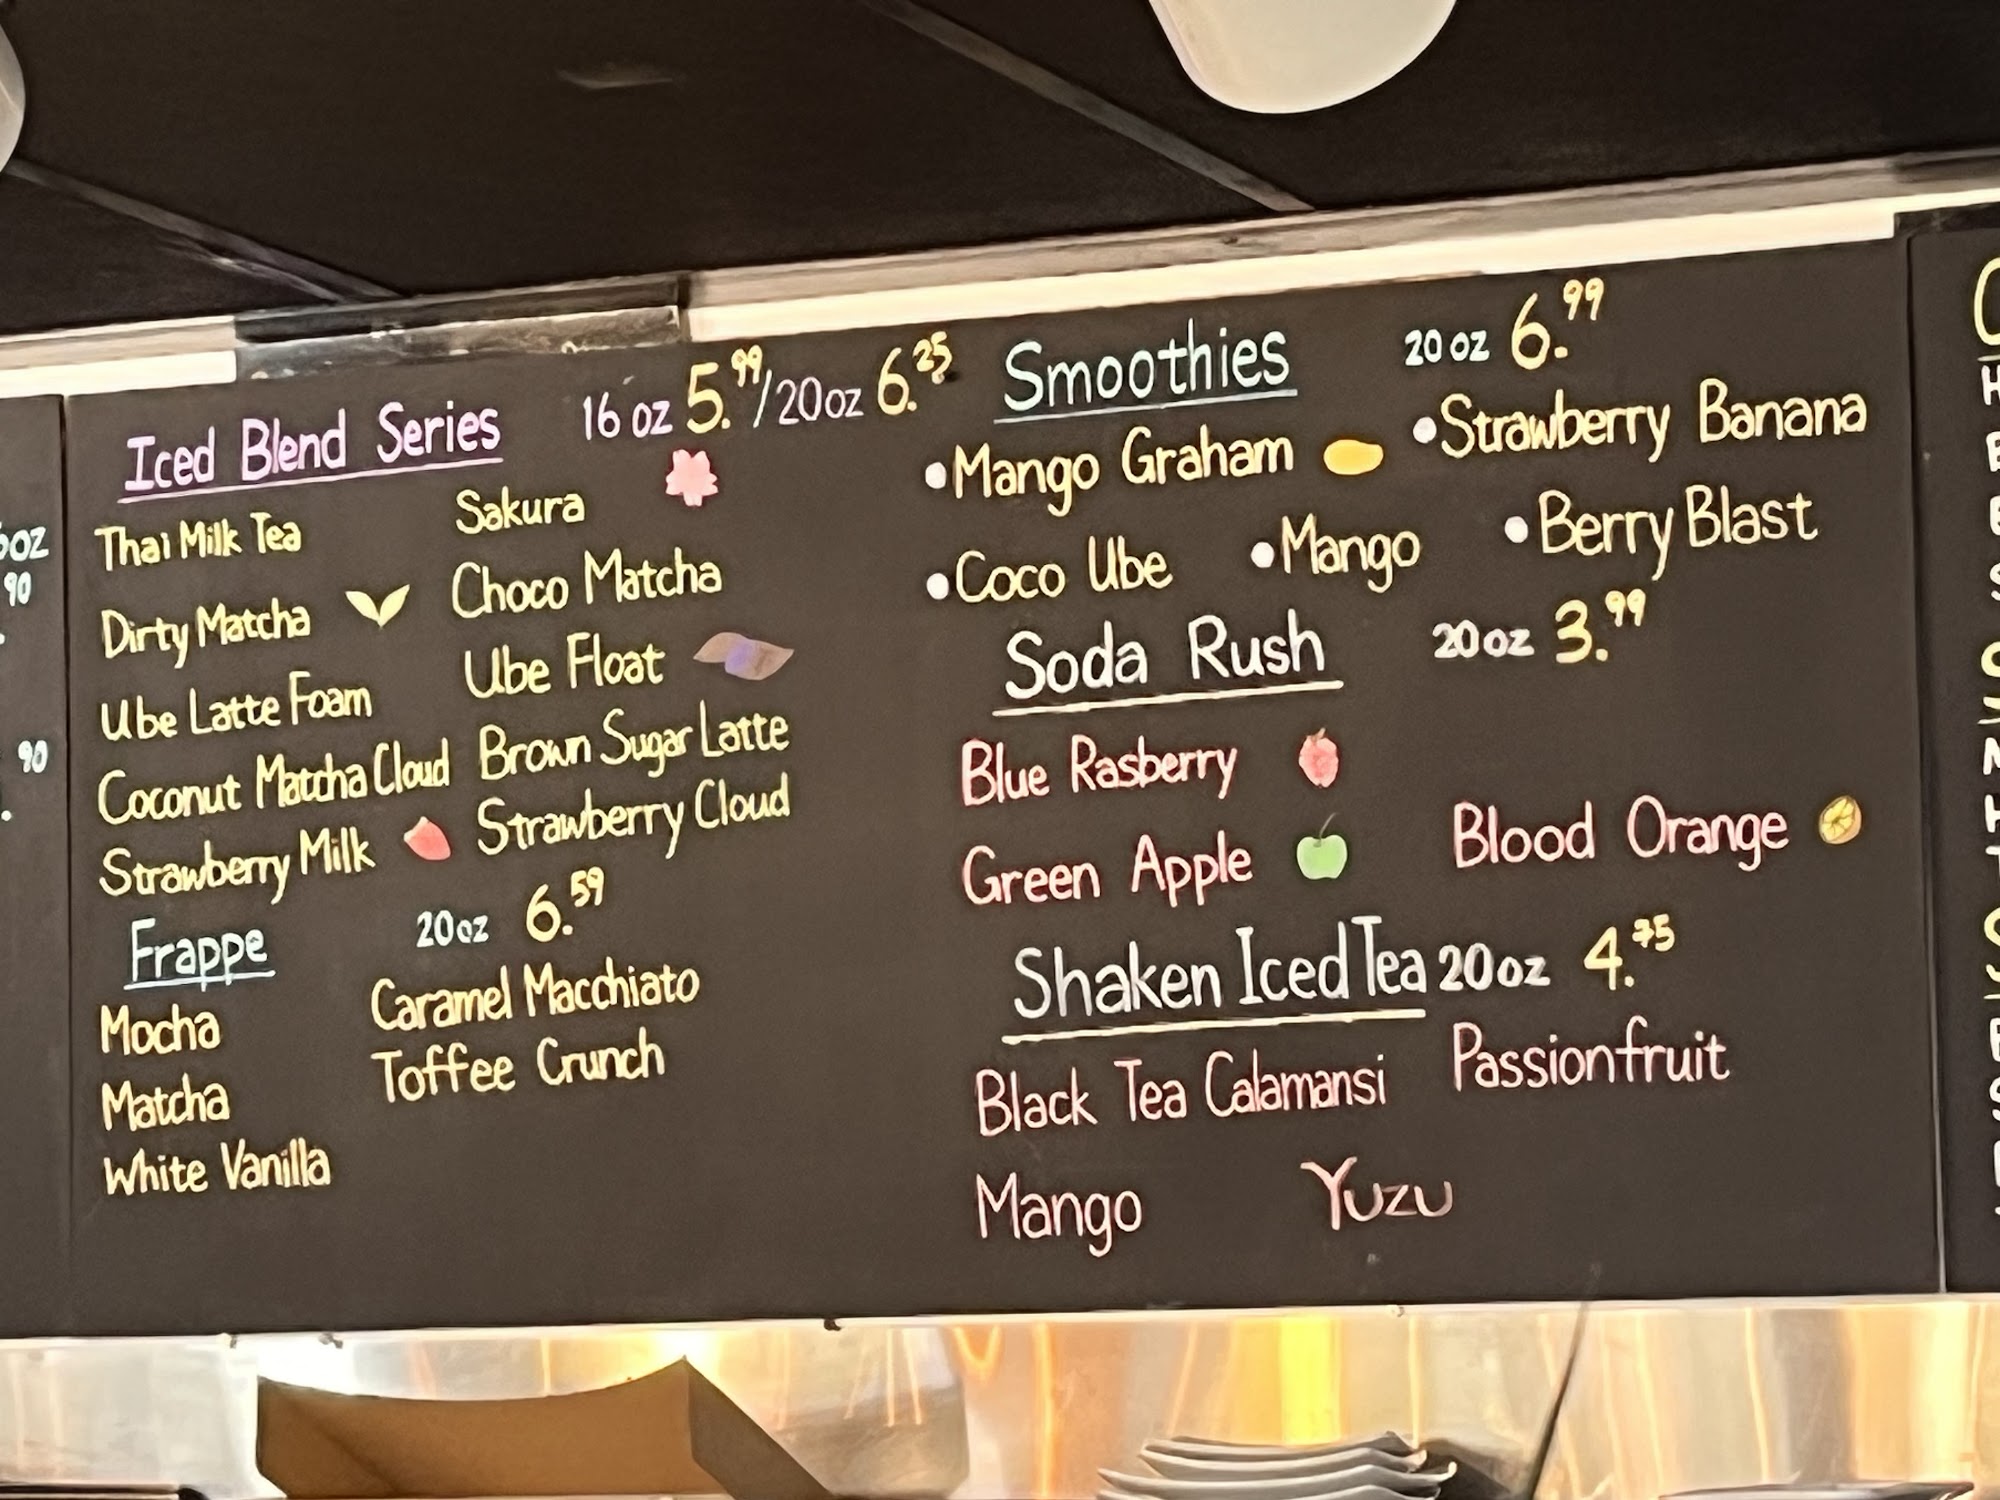 Iced Blend Series 16 oz 5.99/20oz 6.25
Thai Milk Tea
Dirty Matcha
Ube Latte Foam
Coconut Matcha Cloud
Strawberry Milk
Sakura
Choco Matcha
Ube Float
Brown Sugar Latte
Strawberry Cloud
Frappe 20oz 6.59
Mocha
Matcha
White Vanilla
Caramel Macchiato
Toffee Crunch
Smoothies 20 oz 6.99
•Mango Graham •Strawberry Banana
•Coco Ube •Mango •Berry Blast
Soda Rush 20oz 3.99
Blue Rasberry
Green Apple Blood Orange
Shaken Iced Tea 20oz 4.75
Black Tea Calamansi Passionfruit
Mango Yuzu
oz
90
90